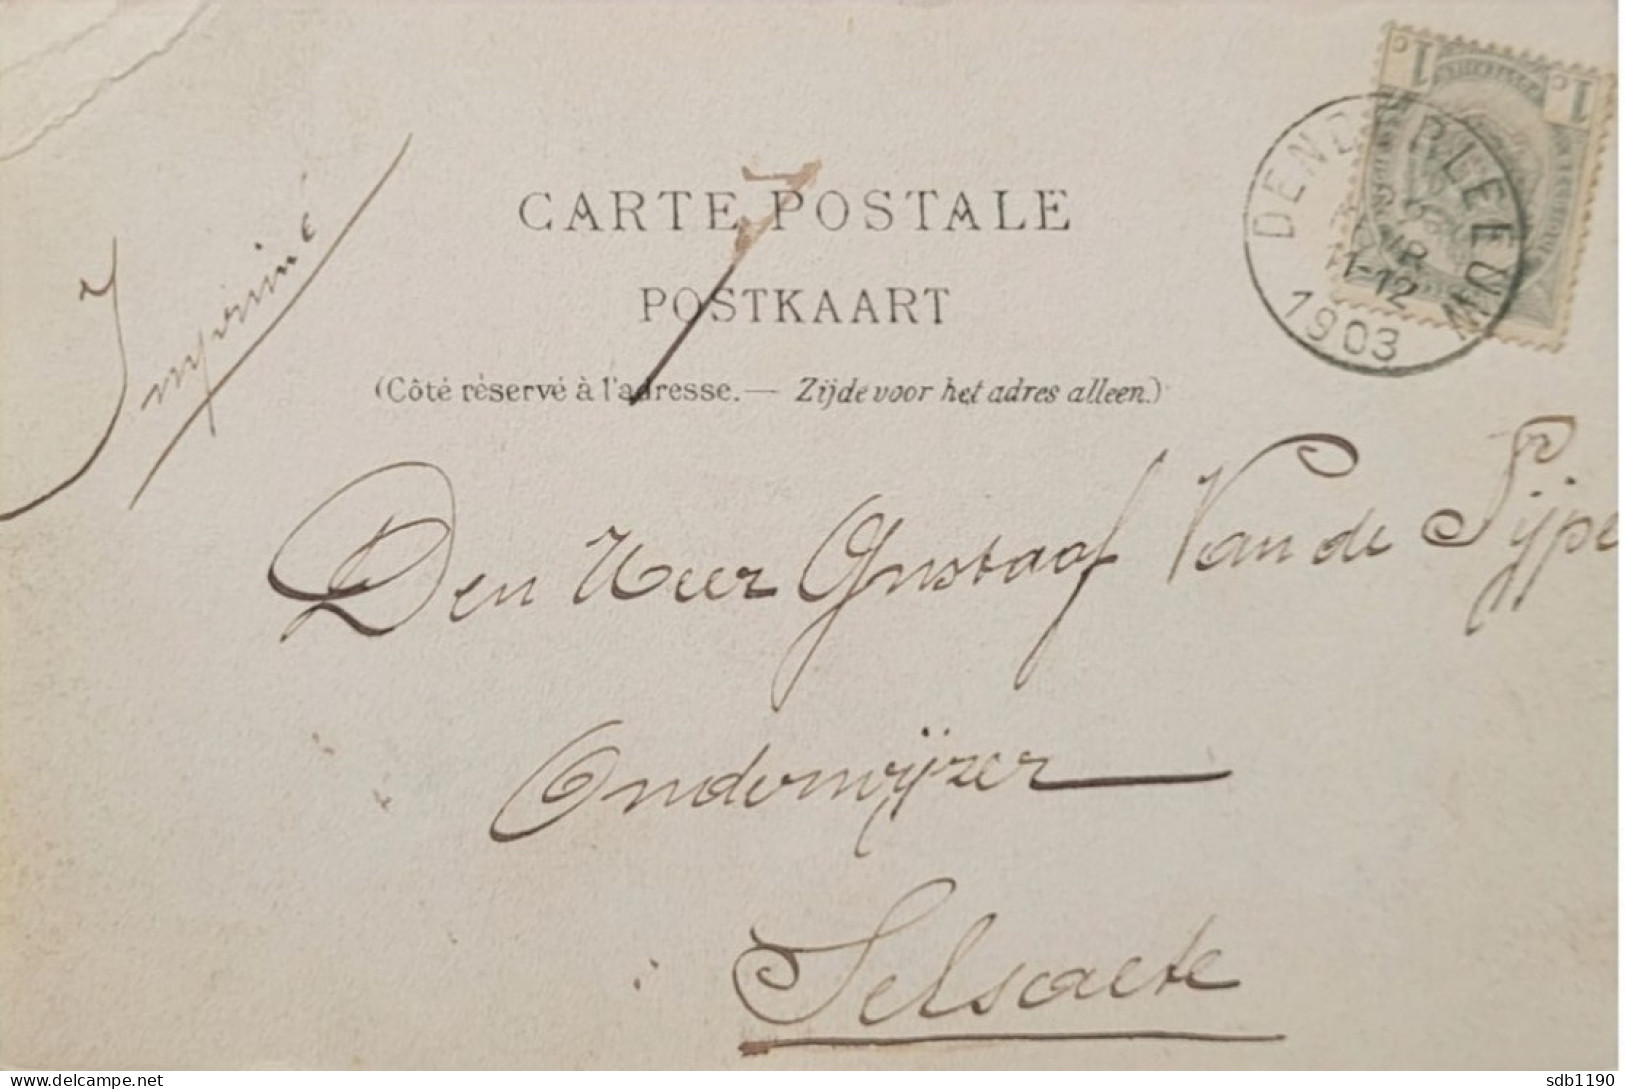 Imprimé
CARTE POSTALE
POSTKAART
(Côté réservé à l'adresse.— Zijde voor het adres alleen.)
1 1
DENDERLEEUW
11-12
1903
Den Heer Gustaaf Van de Sijpe
Onderwijzer
Selsaete
sdb1190